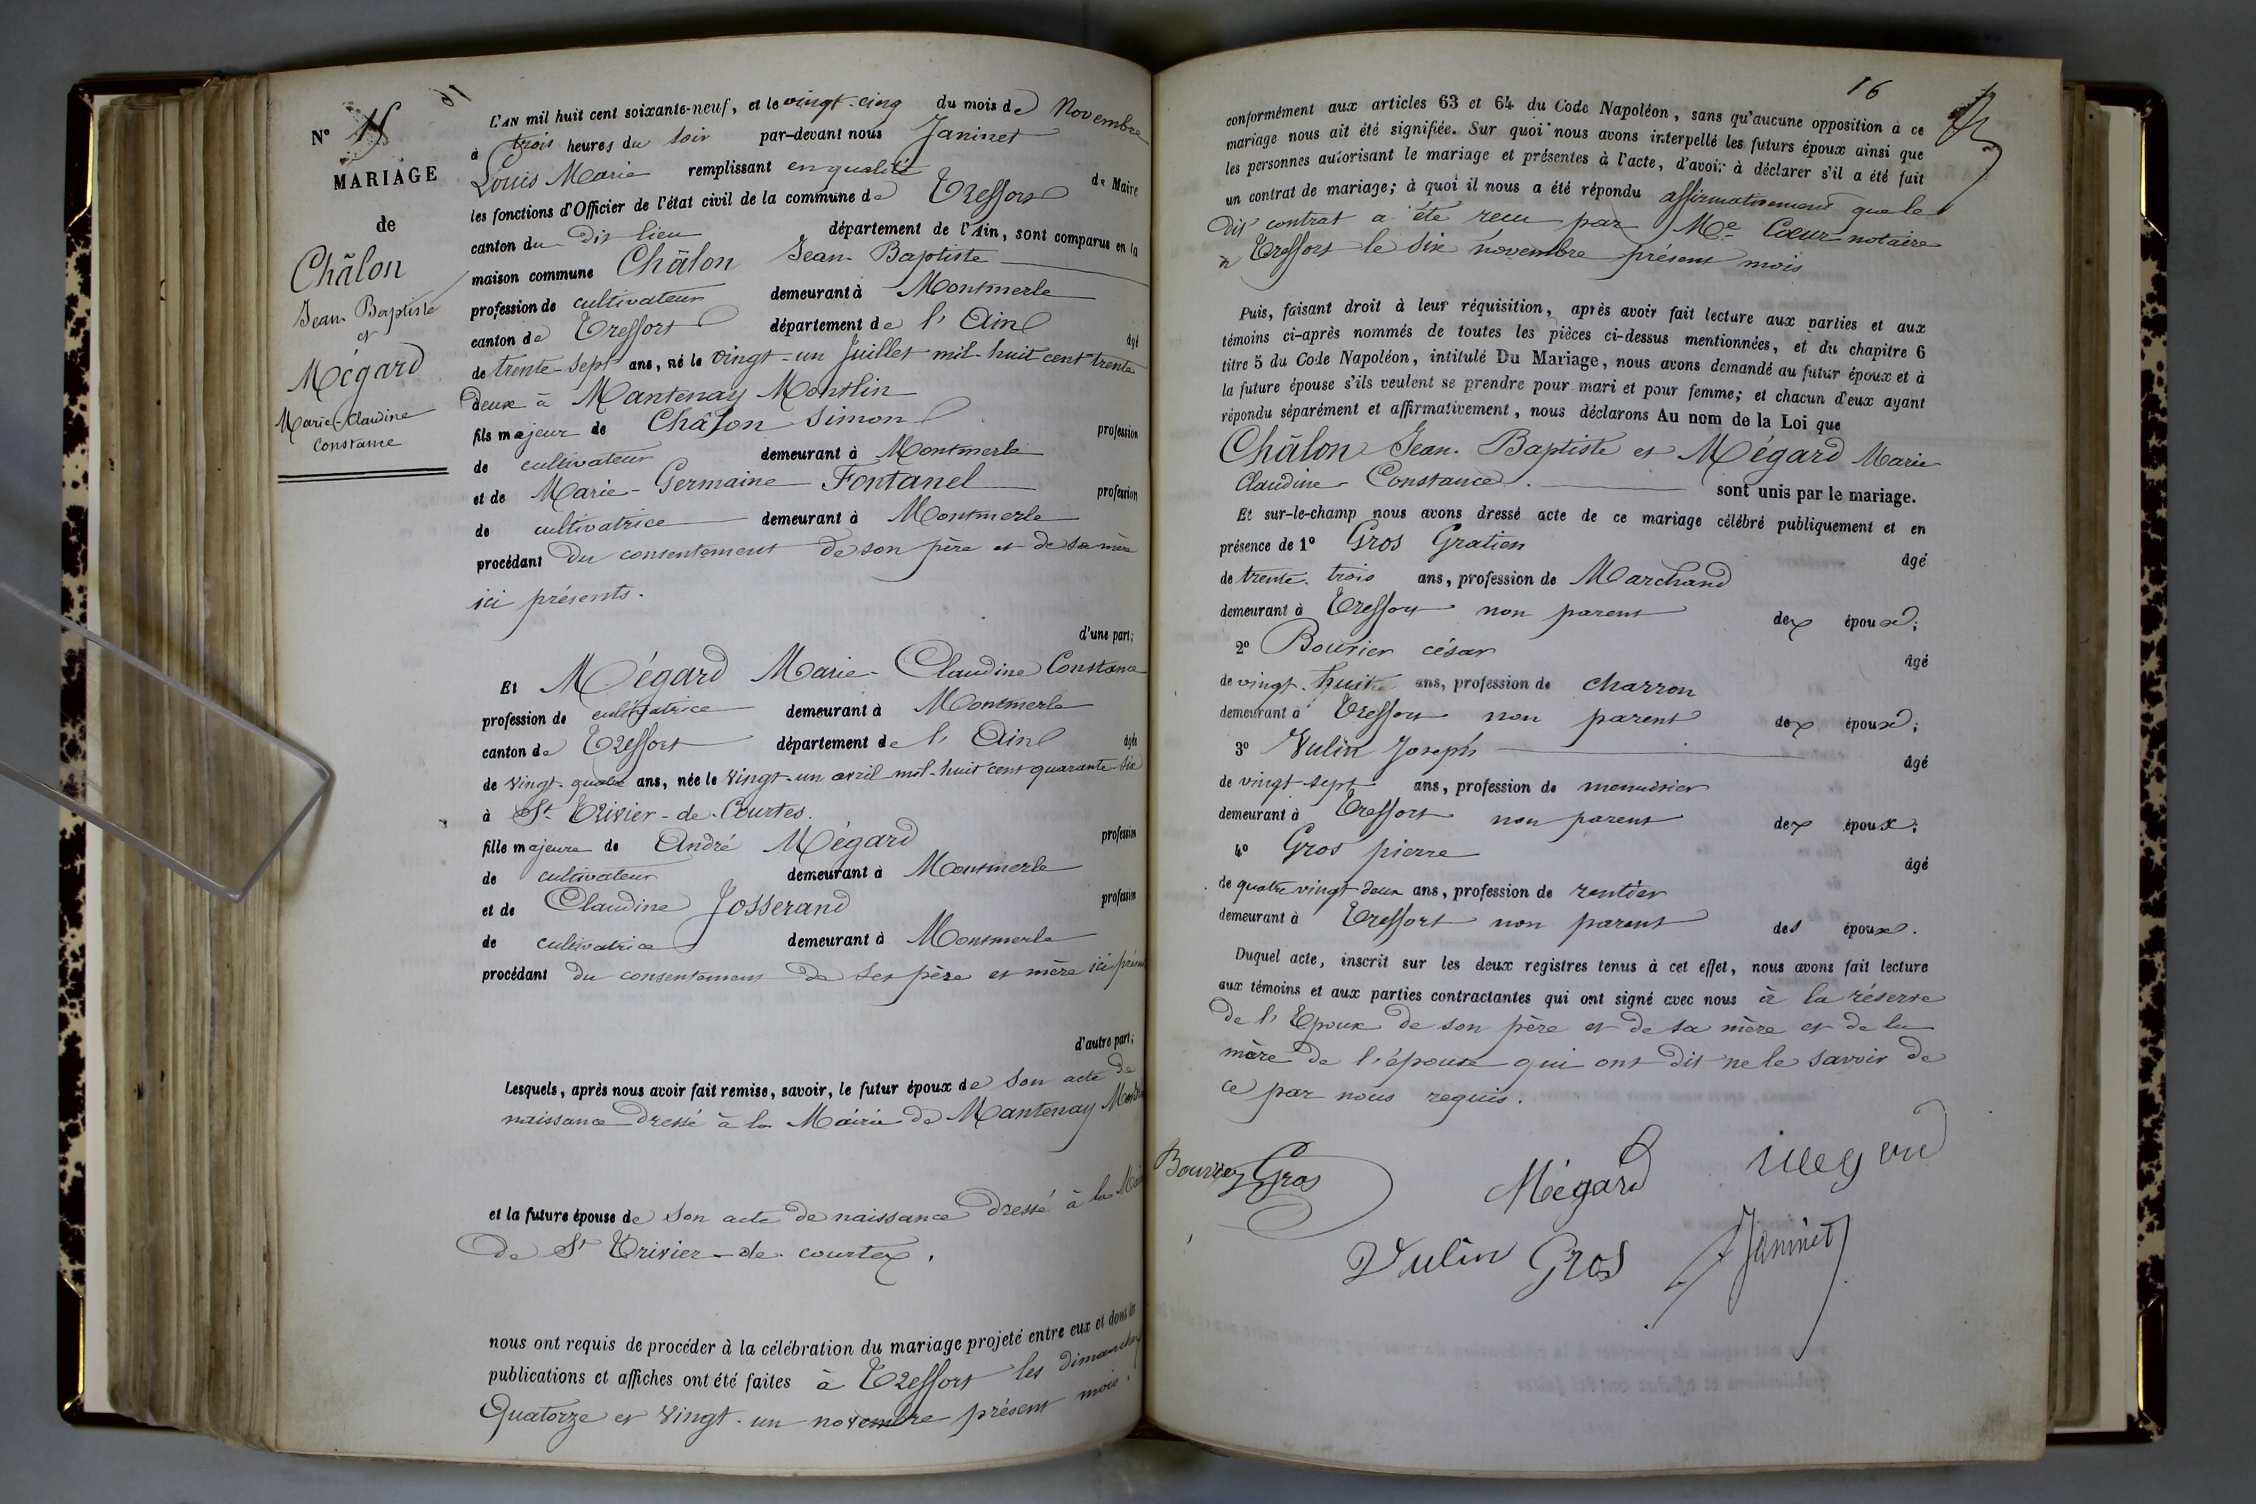 N° 15
MARIAGE
de
Châlon
Jean-Baptiste
et
Mégard
Marie-Claudine
Constance
L'AN mil huit cent soixante-neuf, et le vingt-cinq du mois de Novembre
à trois heures du soir par-devant nous Janinet
Louis Marie remplissant en qualité de Maire
les fonctions d'Officier de l'état civil de la commune de Treffort
canton du dit lieu département de l'Ain, sont comparus en la
maison commune Châlon Jean-Baptiste
profession de cultivateur demeurant à Montmerle
canton de Treffort département de l'Ain âgé
de trente-sept ans, né le vingt-un Juillet mil-huit cent trente
deux à Mantenay Montlin
fils majeur de Châlon Simon profession
de cultivateur demeurant à Montmerle
et de Marie-Germaine Fontanel profession
de cultivatrice demeurant à Montmerle
procédant du consentement de son père et de sa mère
ici présents.
d'une part;
Et Mégard Marie-Claudine Constance
profession de cultivatrice demeurant à Montmerle
canton de Treffort département de l'Ain âgée
de vingt-quatre ans, née le vingt-un avril mil-huit cent quarante-six
à St Trivier-de-Courtes.
fille majeure de André Mégard profession
de cultivateur demeurant à Montmerle
et de Claudine Josserand profession
de cultivatrice demeurant à Montmerle
procédant du consentement de ses père et mère ici
d'autre part;
Lesquels, après nous avoir fait remise, savoir, le futur époux de son acte de
naissance dressé à la Mairie de Mantenay
et la future épouse de son acte de naissance dressé à la
de St Trivier-de-courtes.
nous ont requis de procéder à la célébration du mariage projeté entre eux et dont les
publications et affiches ont été faites à Treffort les dimanches
Quatorze et vingt-un novembre présent mois.
16
conformément aux articles 63 et 64 du Code Napoléon, sans qu'aucune opposition à ce
mariage nous ait été signifiée. Sur quoi nous avons interpellé les futurs époux ainsi que
les personnes autorisant le mariage et présentes à l'acte, d'avoir à déclarer s'il a été fait
un contrat de mariage; à quoi il nous a été répondu affirmativement que le
dit contrat a été reçu par Me Coeur notaire
à Treffort le six novembre présent mois
Puis, faisant droit à leur réquisition, après avoir fait lecture aux parties et aux
témoins ci-après nommés de toutes les pièces ci-dessus mentionnées, et du chapitre 6
titre 5 du Code Napoléon, intitulé Du Mariage, nous avons demandé au futur époux et à
la future épouse s'ils veulent se prendre pour mari et pour femme; et chacun d'eux ayant
répondu séparément et affirmativement, nous déclarons Au nom de la Loi que
Châlon Jean-Baptiste et Mégard Marie
Claudine Constance. sont unis par le mariage.
Et sur-le-champ nous avons dressé acte de ce mariage célébré publiquement et en
présence de 1° Gros Gratien âgé
de trente-trois ans, profession de Marchand
demeurant à Treffort non parent des époux;
2° Bourier césar âgé
de vingt-huit ans, profession de charron
demeurant à Treffort non parent des époux;
3° Vulin Joseph âgé
de vingt-sept ans, profession de menuisier
demeurant à Treffort non parent des époux;
4° Gros pierre âgé
de quatre vingt deux ans, profession de rentier
demeurant à Treffort non parent des époux.
Duquel acte, inscrit sur les deux registres tenus à cet effet, nous avons fait lecture
aux témoins et aux parties contractantes qui ont signé avec nous à la réserve
de l'Epoux de son père et de sa mère et de la
mère de l'épouse qui ont dit ne le savoir de
ce par nous requis.
Bourier Gros Mégard megard
Vulin Gros Janinet